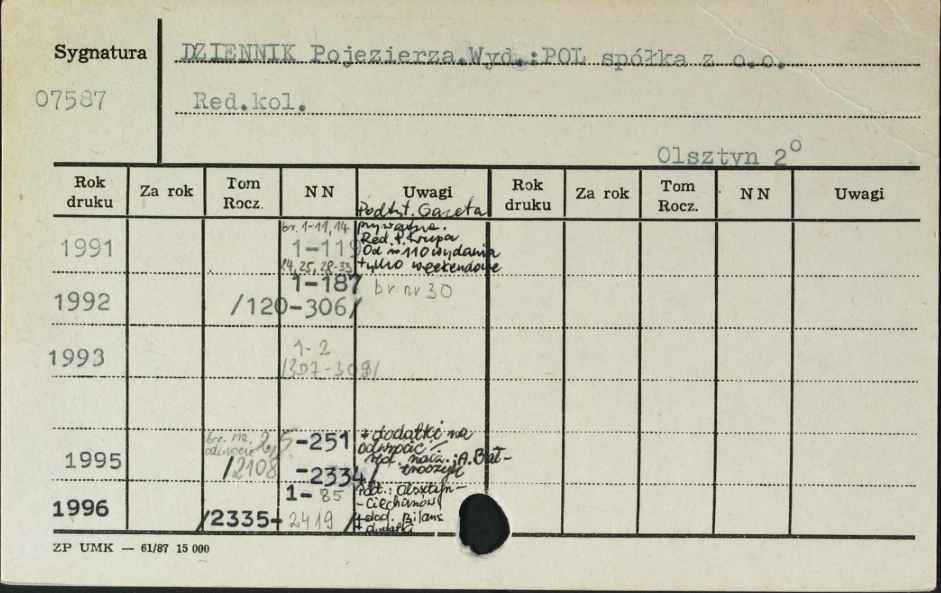 Sygnatura DZIENNIK Pojezierza.Wyd.:POL spółka z o.o.
07587 Red.kol.
Olsztyn 2°
Rok druku Za rok Tom Rocz. NN Uwagi Rok druku Za rok Tom Rocz. NN Uwagi
Podtyt. Gazeta
br. 1-11, 14 prywatna.
1991 1-119 Red. P. Krupa
Od nr 110 wydania
24, 25, 28-33 tylko weekendowe
1-187 br nr 30
1992 /120-306/
1993 1-2
/307-308/
2,5-251 + dodatki na
odwrocie
1995 /2108-2334/ red. nacz.: A. Bał-
1996 1-85 : Olsztyn-
-Ciechanów
/2335-2419/ + dod. Bilans
+ dodatki
ZP UMK — 61/87 15 000